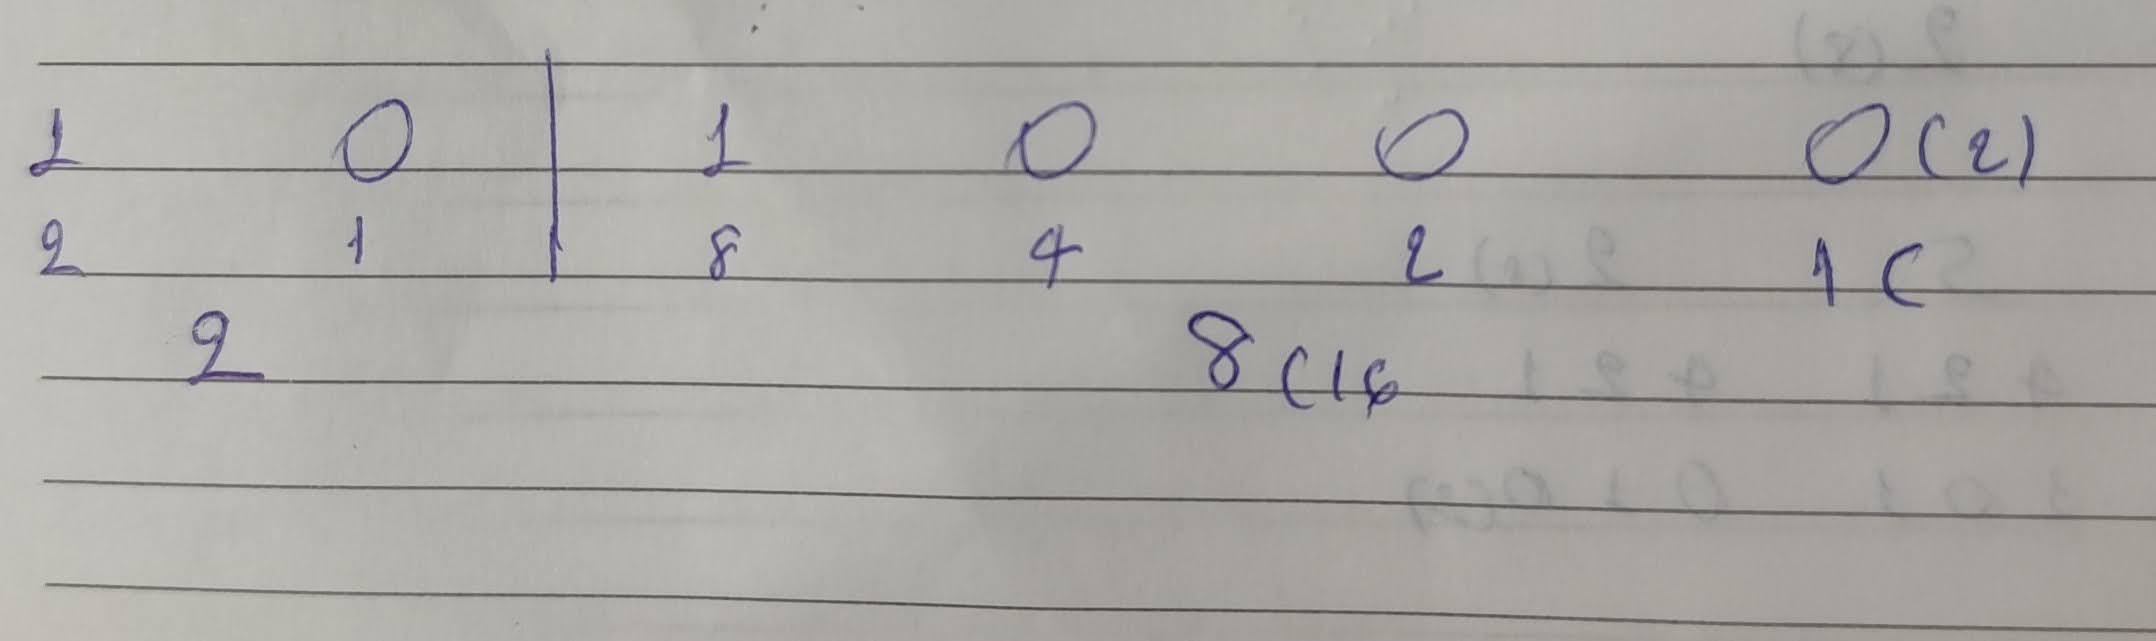 1 0 | 1 0 0 0 (2)
2 1 | 8 4 2 1 (
2 8 (16